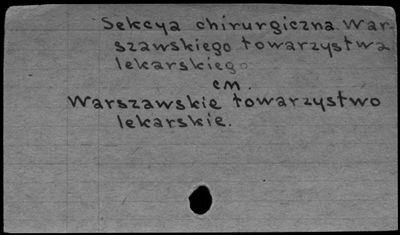 Sekcya chirurgiczna War-
szawskiego towarzystwa
lekarskiego
cm.
Warszawskie towarzystwo
lekarskie.